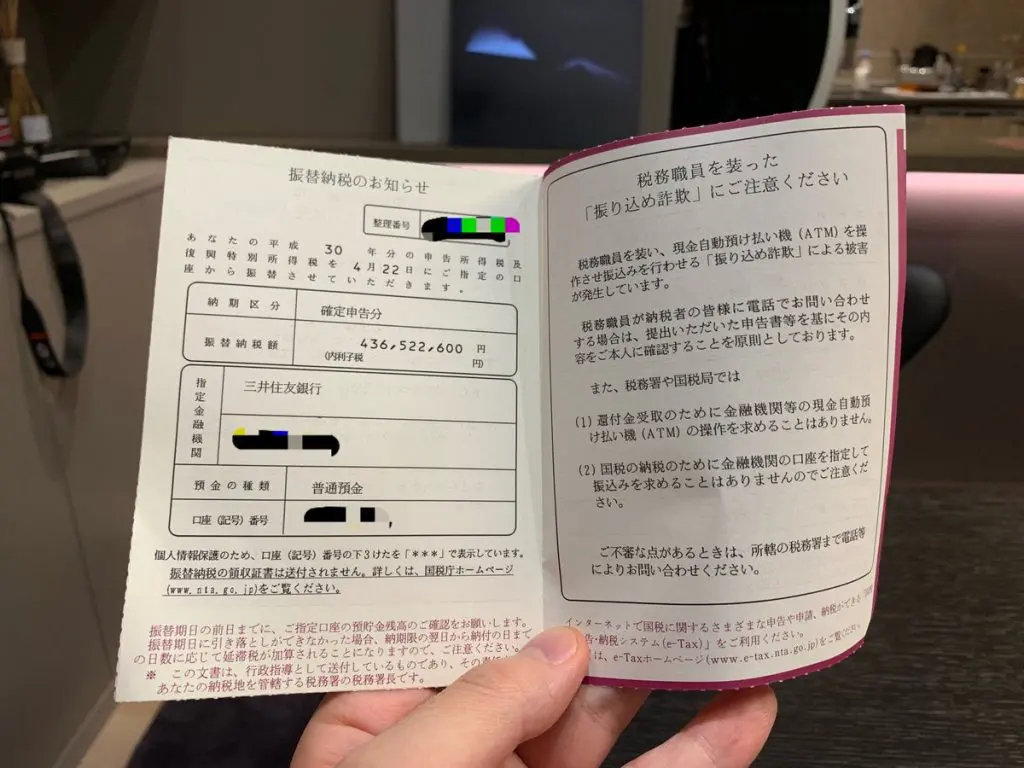 振替納税のお知らせ
整理番号
あなたの平成 30 年分の申告所得税及
復興特別所得税を 4月22日にご指定の口
座から振替させていただきます。
納期区分
確定申告分
振替納税額
436,522,600 円
(内利子税 円)
指定金融機関
三井住友銀行
預金の種類
普通預金
口座(記号)番号
個人情報保護のため、口座(記号)番号の下3けたを「***」で表示しています。
振替納税の領収証書は送付されません。詳しくは、国税庁ホームページ
(www.nta.go.jp)をご覧ください。
振替期日の前日までに、ご指定口座の預貯金残高のご確認をお願いします。
振替期日に引き落としができなかった場合、納期限の翌日から納付の日まで
の日数に応じて延滞税が加算されることになりますので、ご注意ください。
※ この文書は、行政指導として送付しているものであり、その
あなたの納税地を管轄する税務署の税務署長です。
税務職員を装った
「振り込め詐欺」にご注意ください
税務職員を装い、現金自動預け払い機(ATM)を操
作させ振込みを行わせる「振り込め詐欺」による被害
が発生しています。
税務職員が納税者の皆様に電話でお問い合わせ
する場合は、提出いただいた申告書等を基にその内
容をご本人に確認することを原則としております。
また、税務署や国税局では
(1) 還付金受取のために金融機関等の現金自動預
け払い機(ATM)の操作を求めることはありません。
(2) 国税の納税のために金融機関の口座を指定して
振込みを求めることはありませんのでご注意くだ
さい。
ご不審な点があるときは、所轄の税務署まで電話等
によりお問い合わせください。
インターネットで国税に関するさまざまな申告や申請、納税ができる
告・納税システム(e-Tax)」をご利用ください。
は、e-Taxホームページ(www.e-tax.nta.go.jp)をご覧ください。